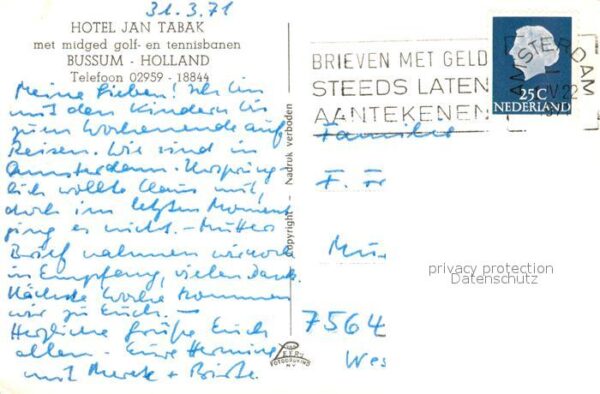 31.3.71
HOTEL JAN TABAK
met midged golf- en tennisbanen
BUSSUM - HOLLAND
Telefoon 02959 - 18844
Meine Lieben! Ich bin
mit den Kindern bis
zum Wochenende auf
Reisen. Wir sind in
Amsterdam. Ursprüng-
lich wollte Claus mit,
doch im letzten Moment
ging es nicht. - Mutters
Brief nahmen wir noch
in Empfang, vielen Dank.
Nächste Woche kommen
wir zu Euch. -
Herzliche Grüße Euch
allen. Eure
mit + Birte.
Copyright - Nadruk verboden
FOTODRUKIND
N.V.
BRIEVEN MET GELD
STEEDS LATEN
AANTEKENEN
AMSTERDAM
22
25C
NEDERLAND
Familie
F. Fr
Mün
privacy protection
Datenschutz
7564
Wes